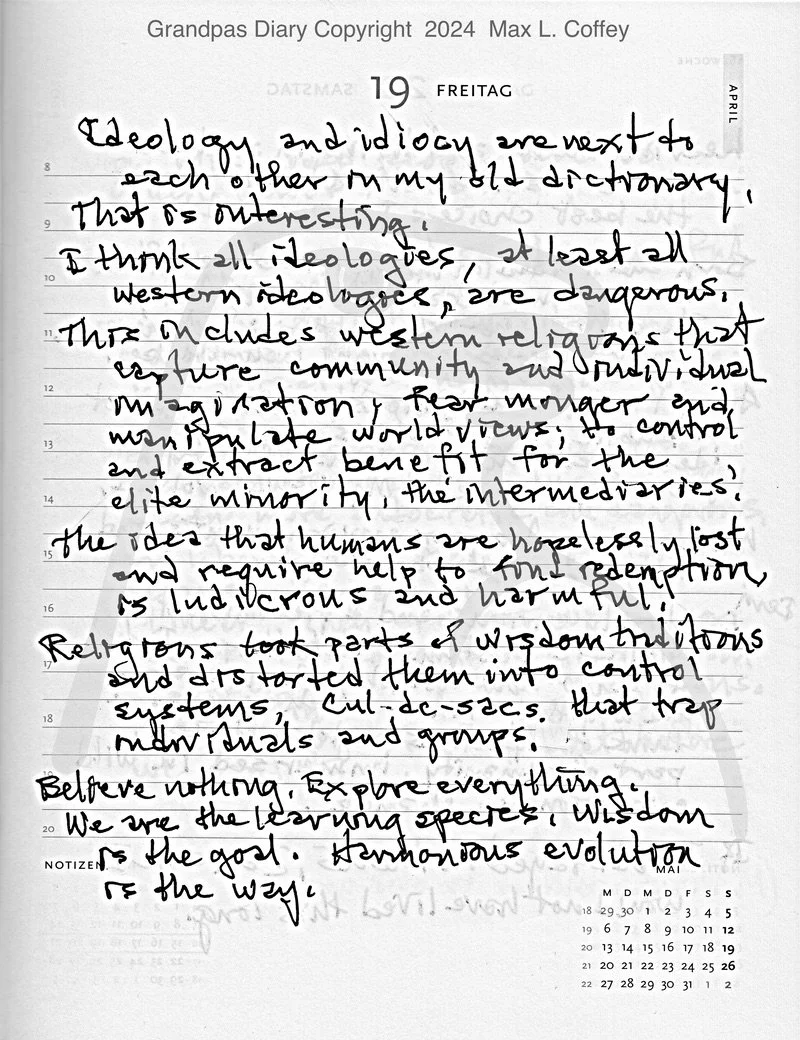 Grandpas Diary Copyright 2024 Max L. Coffey
19 FREITAG
APRIL
Ideology and idiocy are next to
8 each other in my old dictionary.
9 That is interesting.
I think all ideologies, at least all
10 western ideologies, are dangerous.
11 This includes western religions that
capture community and individual
12 imagination, fear monger and
13 manipulate world views; to control
and extract benefit for the
14 elite minority, the intermediaries.
The idea that humans are hopelessly lost
15 and require help to find redemption,
16 is ludicrous and harmful!
Religions took parts of wisdom traditions
17 and distorted them into control
systems, Cul-de-sacs. that trap
18 individuals and groups.
Believe nothing. Explore everything.
20 We are the learning species. Wisdom
is the goal. Harmonious evolution
NOTIZEN
is the way.
MAI
M D M D F S S
18 29 30 1 2 3 4 5
19 6 7 8 9 10 11 12
20 13 14 15 16 17 18 19
21 20 21 22 23 24 25 26
22 27 28 29 30 31 1 2